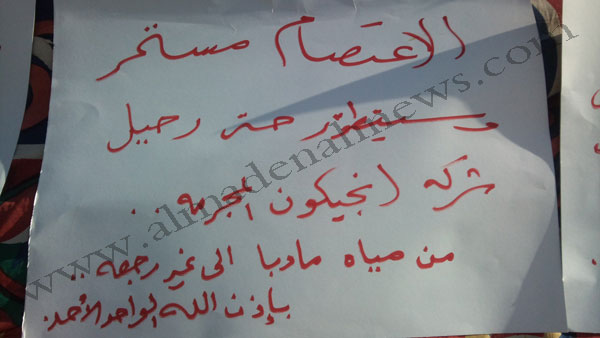 الاعتصام مستمر
وسيستمر حتى رحيل
شركه انجيكون المجرمه..
من مياه مادبا الى غير رجعه..
بإذن الله الواحد الأحد.
www.almadenahnews.com